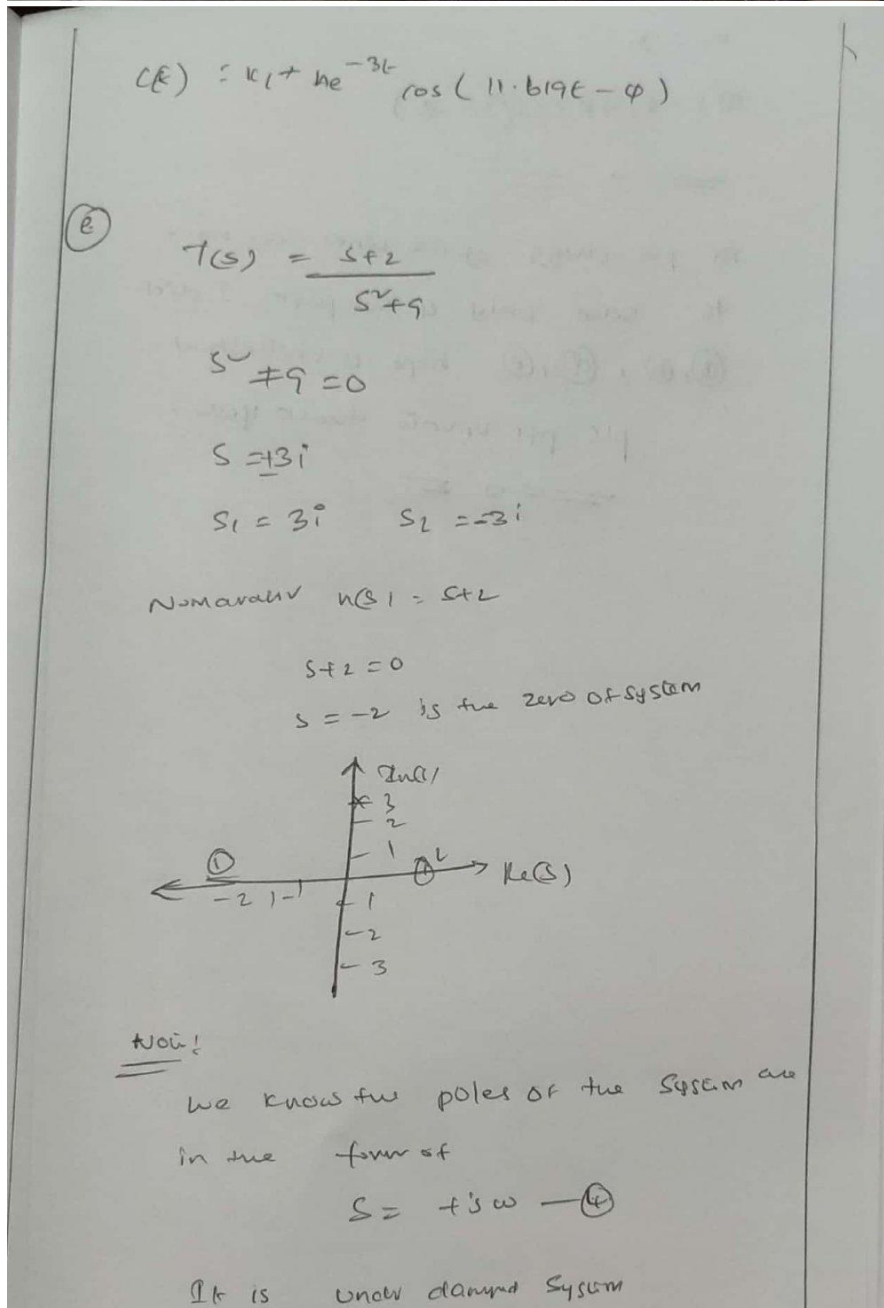 c(t) = k1 + ke^-3t cos(11.619t - φ)
e
T(s) = s+2 / s²+9
s² +9 =0
s =±3i
s1 = 3i s2 = -3i
n(s) = s+2
s+2 =0
s = -2 is the zero of system
Im(s)
3
2
1
Re(s)
-2 1-
1
-2
3
Note!
We know the poles of the System are
in the form of
S = ±jω — 4
It is under damped System